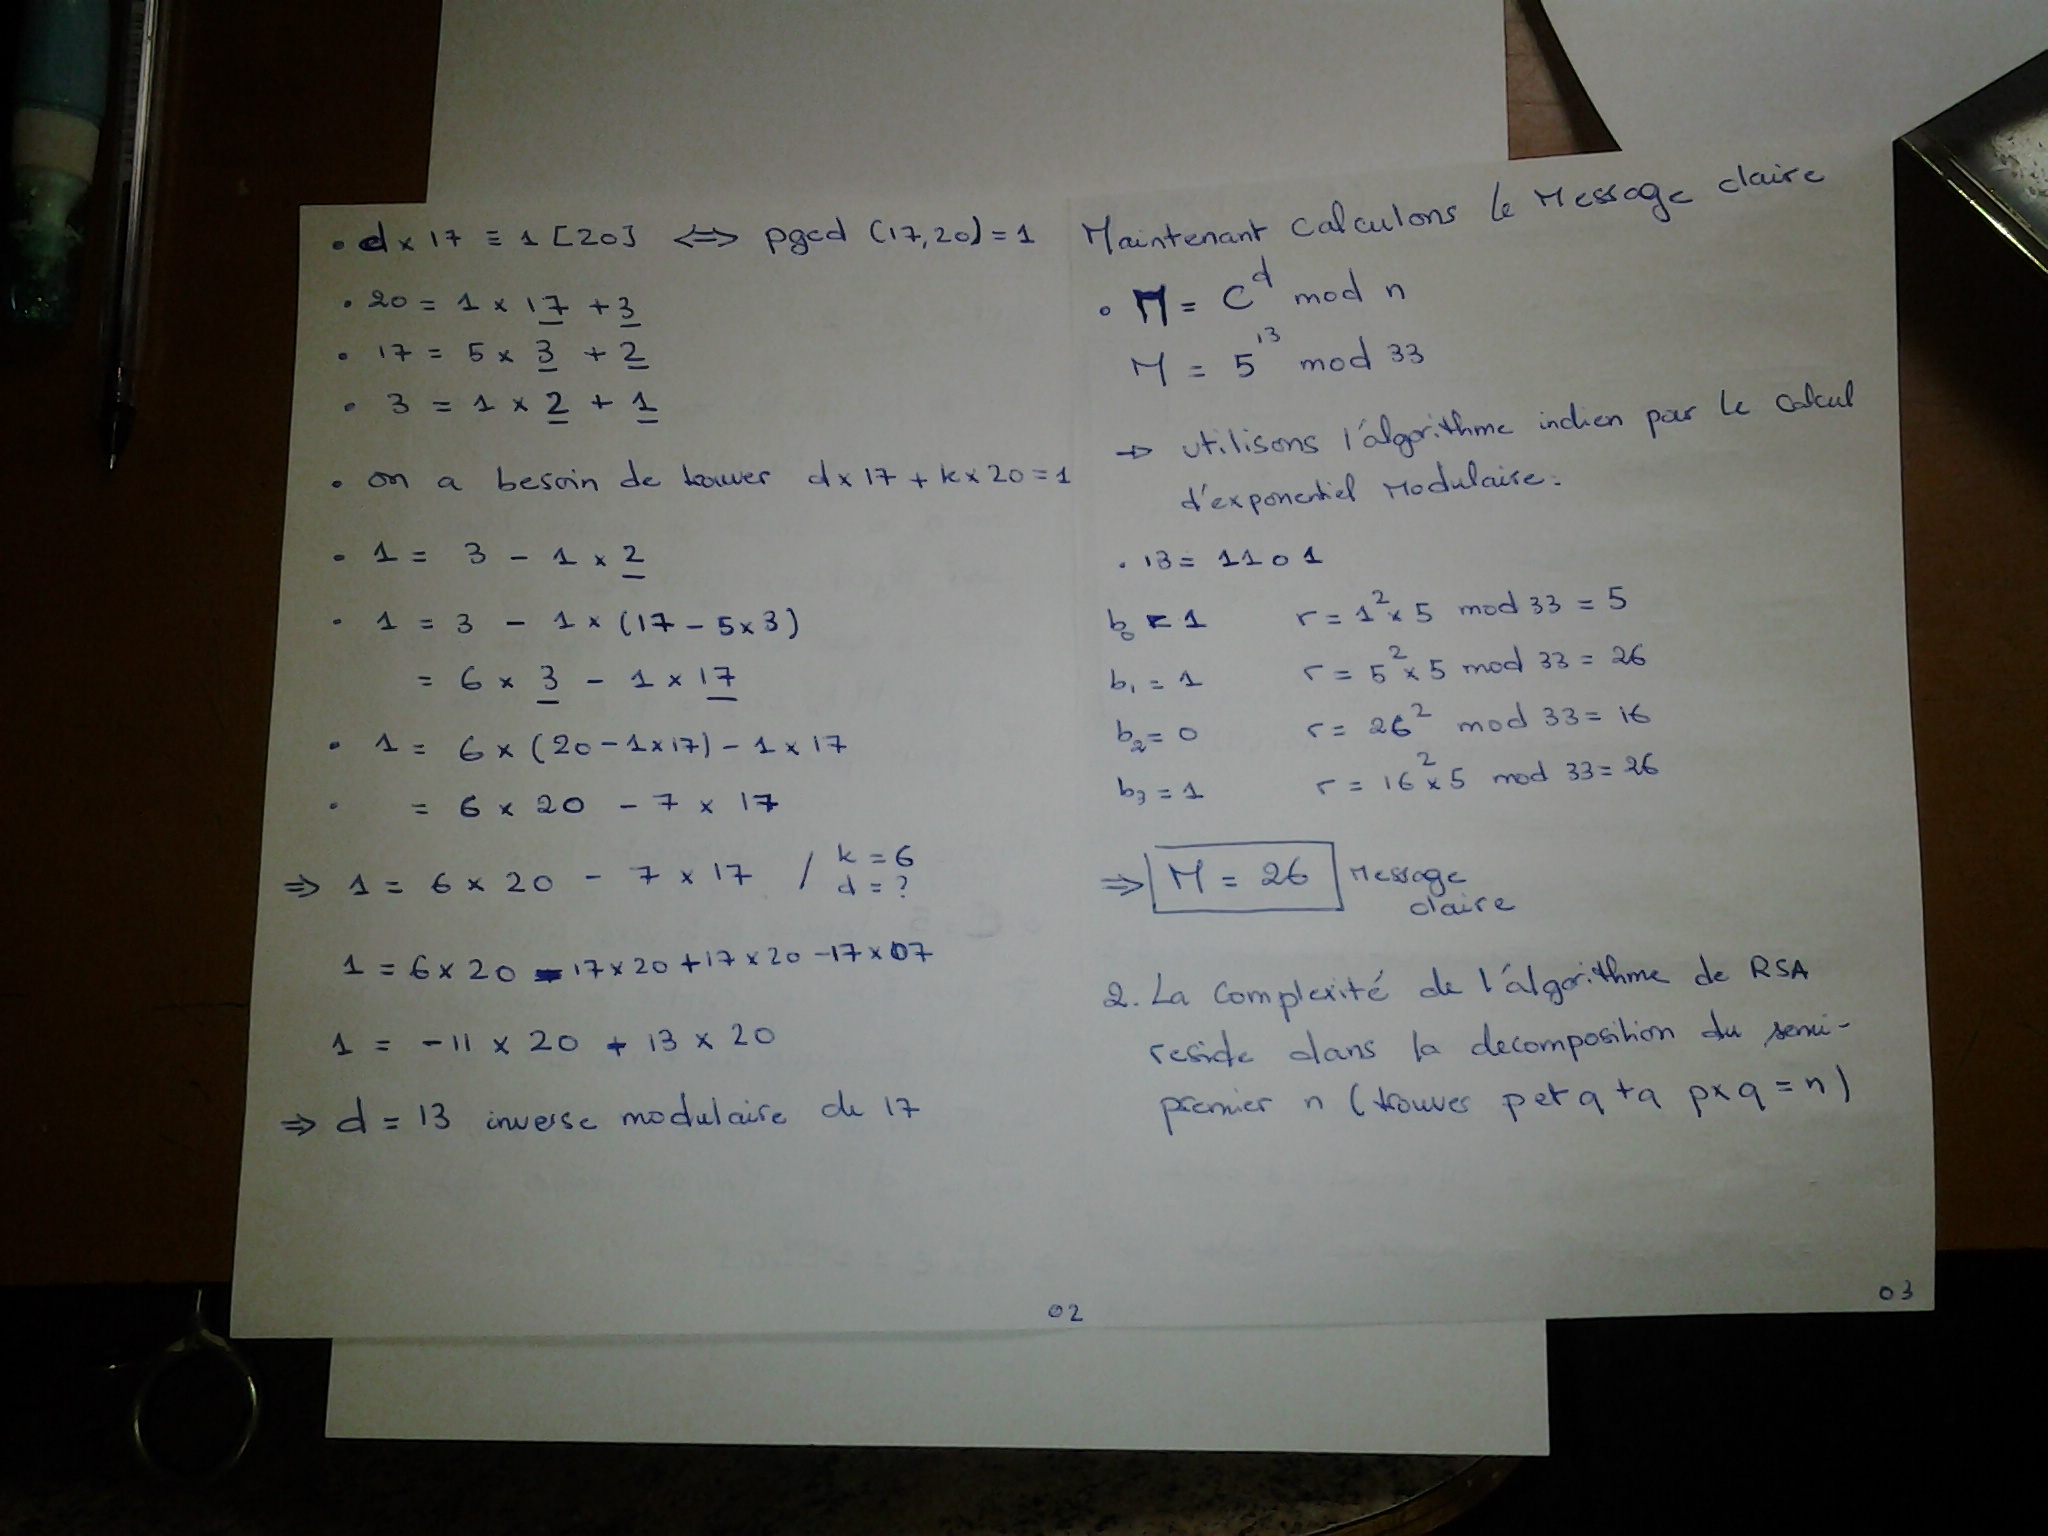 • d × 17 ≡ 1 [20] ⟺ pgcd (17,20) = 1
• 20 = 1 × 17 + 3
• 17 = 5 × 3 + 2
• 3 = 1 × 2 + 1
• on a besoin de trouver d × 17 + k × 20 = 1
• 1 = 3 - 1 × 2
• 1 = 3 - 1 × (17 - 5 × 3)
= 6 × 3 - 1 × 17
• 1 = 6 × (20 - 1 × 17) - 1 × 17
• = 6 × 20 - 7 × 17
⇒ 1 = 6 × 20 - 7 × 17 / k = 6
d = ?
1 = 6 × 20 - 17 × 20 + 17 × 20 - 17 × 07
1 = -11 × 20 + 13 × 20
⇒ d = 13 inverse modulaire de 17
02
Maintenant calculons le Message claire
• M = C^d mod n
M = 5^13 mod 33
→ utilisons l'algorithme indien par le calcul
d'exponentiel Modulaire.
• 13 = 1101
b₀ = 1 r = 1² × 5 mod 33 = 5
b₁ = 1 r = 5² × 5 mod 33 = 26
b₂ = 0 r = 26² mod 33 = 16
b₃ = 1 r = 16² × 5 mod 33 = 26
⇒ M = 26 Message
claire
2. La complexité de l'algorithme de RSA
reside dans la decomposition du semi-
premier n (trouver p et q tq p × q = n)
03